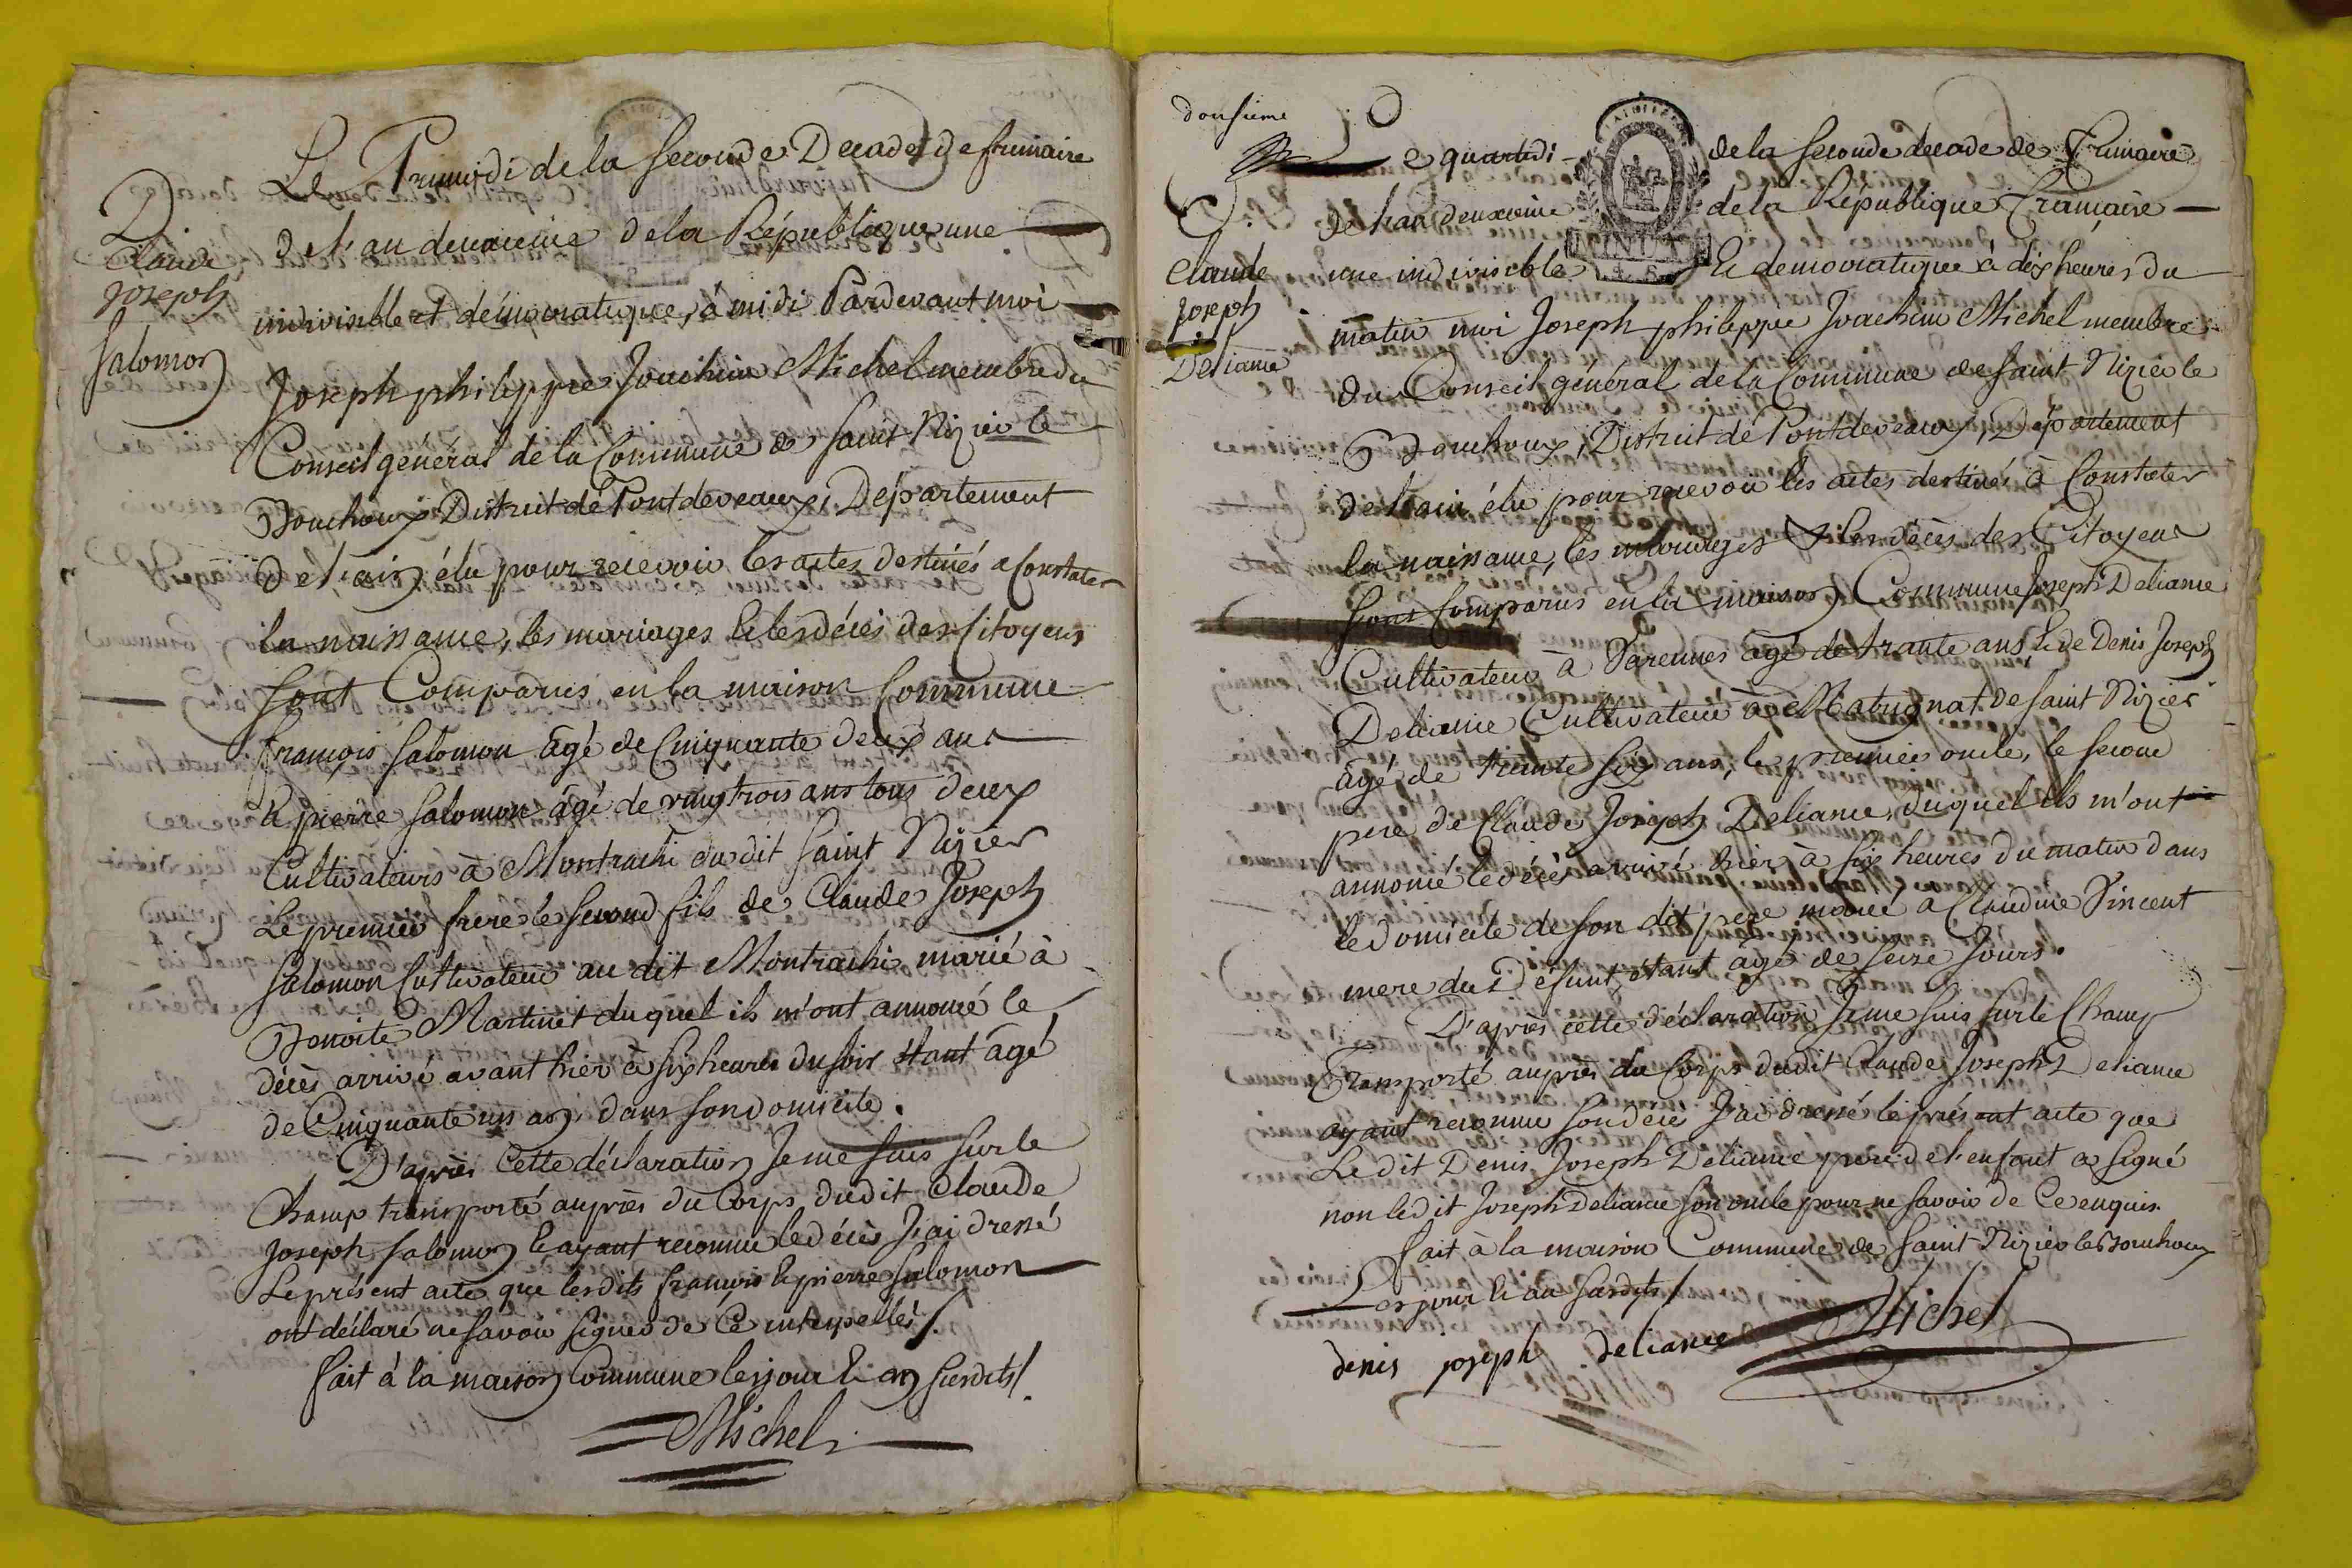 D
Claude
Joseph
Salomon
Le Primidi de la seconde Decade de frimaire
de l'an deuxieme de la République une
indivisible et démocratique, à midi Pardevant moi
Joseph philippe Joachim Michel membre du
Conseil général de la Commune de Saint Nizier le
Bouchoux District de Pontdevaux, Département
de l'ain élu pour recevoir les actes destinés a Constater
la naissance, les mariages & les décès des Citoyens
sont Comparus en la maison Commune
françois Salomon âgé de Cinquante deux ans
& pierre Salomon âgé de vingt trois ans tous deux
Cultivateurs à Montrachi du dit Saint Nizier
Le premier frere le second fils de Claude Joseph
Salomon Cultivateur au dit Montrachi marié à
Benoite Martinet duquel ils m'ont annoncé le
décès arrivé avant hier à six heures du soir étant âgé
de Cinquante un an, dans son domicile.
D'après Cette déclaration Je me suis sur le
Champ transporté auprès du Corps dudit Claude
Joseph Salomon & ayant reconnu le décès J'ai dressé
Le présent acte que lesdits françois & pierre Salomon
ont déclaré ne savoir signer de Ce interpellés/.
fait à la maison Commune les jour & an susdits/.
Michel
D
Claude
Joseph
Deliance
e quartidi de la seconde decade de Frimaire
de l'an deuxieme de la République
une indivisible & democratique à dix heures du
matin moi Joseph philippe Joachim Michel membre
du Conseil général de la Commune de Saint Nizier le
Bouchoux, District de Pontdevaux, Département
de l'ain élu pour recevoir les actes destinés à Constater
la naissance, les mariages & les décès des Citoyens
sont Comparus en la maison Commune Joseph Deliance
Cultivateur à Varennes âgé de trante ans & de Denis Joseph
Deliance Cultivateur à de Saint Nizier
âgé de trente six ans, le premier oncle, le second
pere de Claude Joseph Deliance, duquel ils m'ont
annoncé le décès arrivé hier à six heures du matin dans
le domicile de son dit pere marié a Claudine Vincent
mere du Défunt, étant âgé de seize Jours.
D'après cette déclaration Je me suis sur le Champ
Transporté auprès du Corps dudit Claude Joseph Deliance
ayant reconnu son décès J'ai dressé le présent acte que
Le dit Denis Joseph Deliance pere de l'enfant a signé
non ledit Joseph Deliance son oncle pour ne savoir de Ce enquis.
fait à la maison Commune de Saint Nizier le Bouchoux
Les jour & an susdits/
denis joseph deliance Michel